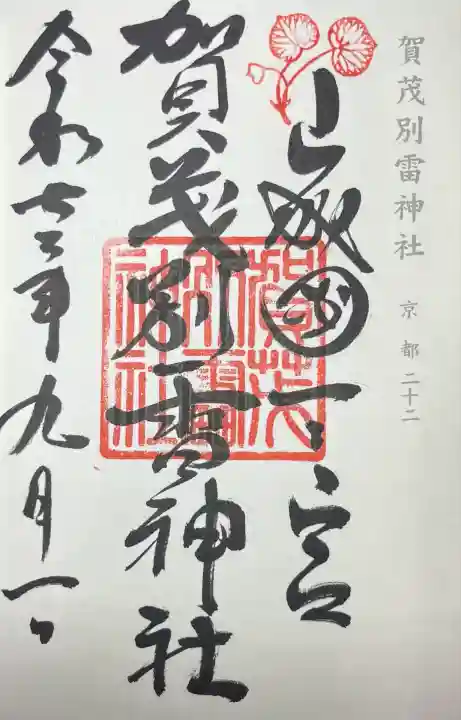 賀茂別雷神社 京都二十二
山城国一之宮
賀茂別雷神社
賀茂
別雷
神社
令和七年九月一日